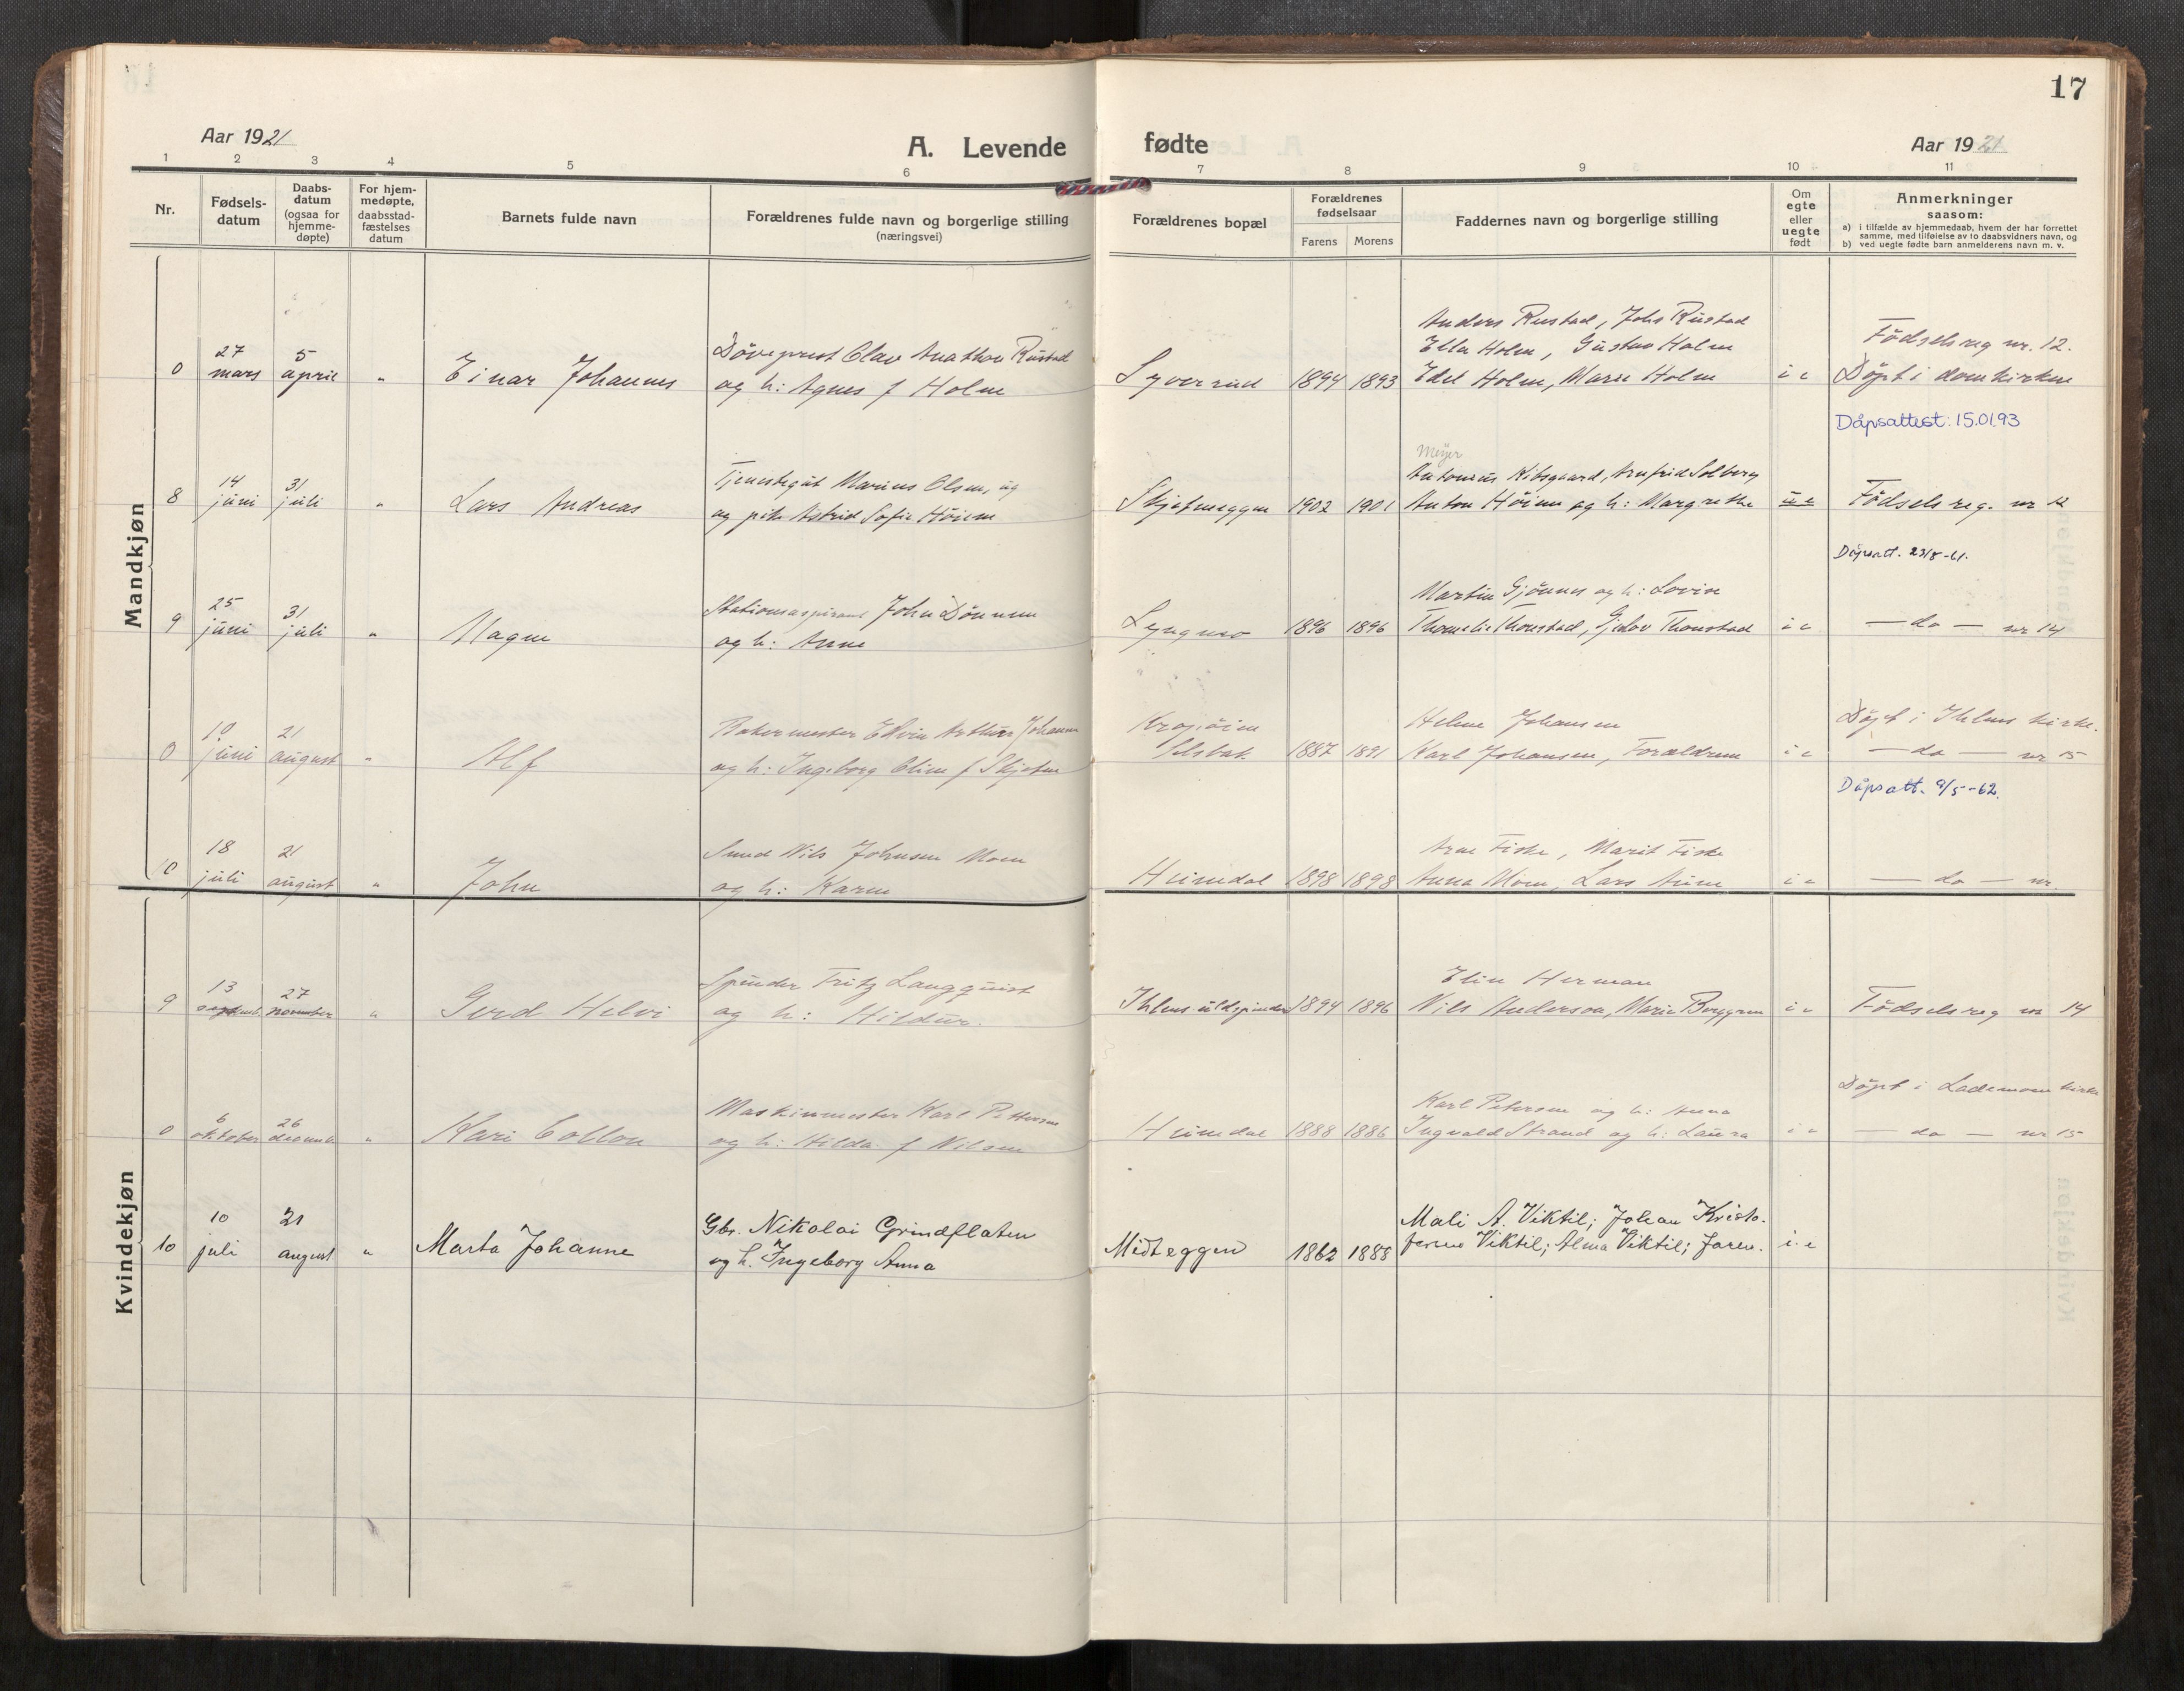 17
Aar 1921
A. Levende fødte
Aar 1921
1 2 3 4 5 6 7 8 9 10 11
Nr.
Fødsels-
datum
Daabs-
datum
(ogsaa for
hjemme-
døpte)
For hjem-
medøpte,
daabsstad-
fæstelses
datum
Barnets fulde navn
Forældrenes fulde navn og borgerlige stilling
(næringsvei)
Forældrenes bopæl
Forældrenes
fødselsaar
Farens Morens
Faddernes navn og borgerlige stilling
Om
egte
eller
uegte
født
Anmerkninger
saasom:
a) i tilfælde av hjemmedaab, hvem der har forrettet
samme, med tilføielse av to daabsvidners navn, og
b) ved uegte fødte barn anmelderens navn m. v.
Mandkjøn
Anders Rustad, Johs Rustad
27 5 Døveprest Olav Anathon Rustad Ella Holm, Gustav Holm Fødselsreg nr. 12.
0 mars april " Einar Johannes og h: Agnes f Holm Syverrud 1894 1893 Edel Holm, Marie Holm i e Døpt i domkirken
Dåpsattest: 15.01.93
Meyer
14 31 Tjenestegut Marius Olsen, ug Antonius Kibsgaard, Arnfrid Solberg
8 juni juli " Lars Andreas og pike Astrid Sofie Høiem Skjefmeggen 1902 1901 Anton Høiem og h: Margrethe u e Fødselsreg. nr 12
Dåpsatt. 23/8-61.
25 31 Stationsaspirant John Dønnem Martin Gjønnes og h: Lovise
9 juni juli " Magne og h: Anne Lyngmo 1896 1896 Thomelie Thonstad, Gjelov Thonstad i e — do — nr 14
10 21 Bakermester Edvin Arthur Johansen Helene Johansen Døpt i Ihlens kirke.
0 juni august " Alf og h: Ingeborg Oline f Skjefm Selsbak 1887 1891 Karl Johansen, Forældrene i e — do — nr 15
Dåpsatt. 9/5-62.
18 21 Smed Nils Johnsen Moen Arne Fiske, Marit Fiske
10 juli august " John og h: Karen Heimdal 1898 1898 Anna Moen, Lars Aune i e — do — nr.
Kvindekjøn
13 27 Spinder Fritz Langquist Elin Herman
9 septemb. november " Gerd Helvi og h: Hildur. Ihlens uldspinderi 1894 1896 Nils Anderson, Marie Berggren i e Fødselsreg nr 14
Døpt i Lademoen kirke
6 26 Maskinmester Karl Pettersen Karl Petersen og h: Anna
0 oktober decemb " Kari Collon og h: Hilda f Nilsen Heimdal 1888 1886 Ingvald Strand og h: Laura i e — do — nr 15
10 21 Gbr. Nikolai Grindflaten Mali A. Viktil; Johan Kristo-
10 juli august " Marta Johanne og h. Ingeborg Anna Midteggen 1862 1888 fersen Viktil; Alma Viktil; Foræ. i. e